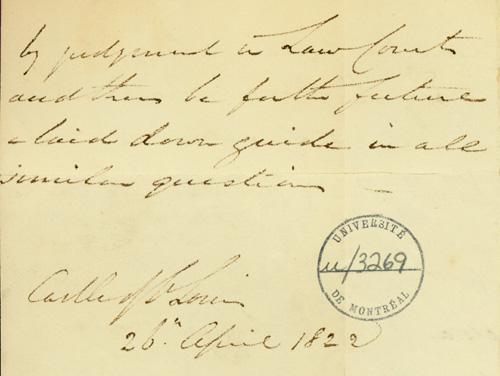 by judgement in Law Courts
and thus be for the future
a laid down guide in all
similar questions
Castle of St Louis
26th April 1822
UNIVERSITÉ
u/3269
DE MONTRÉAL